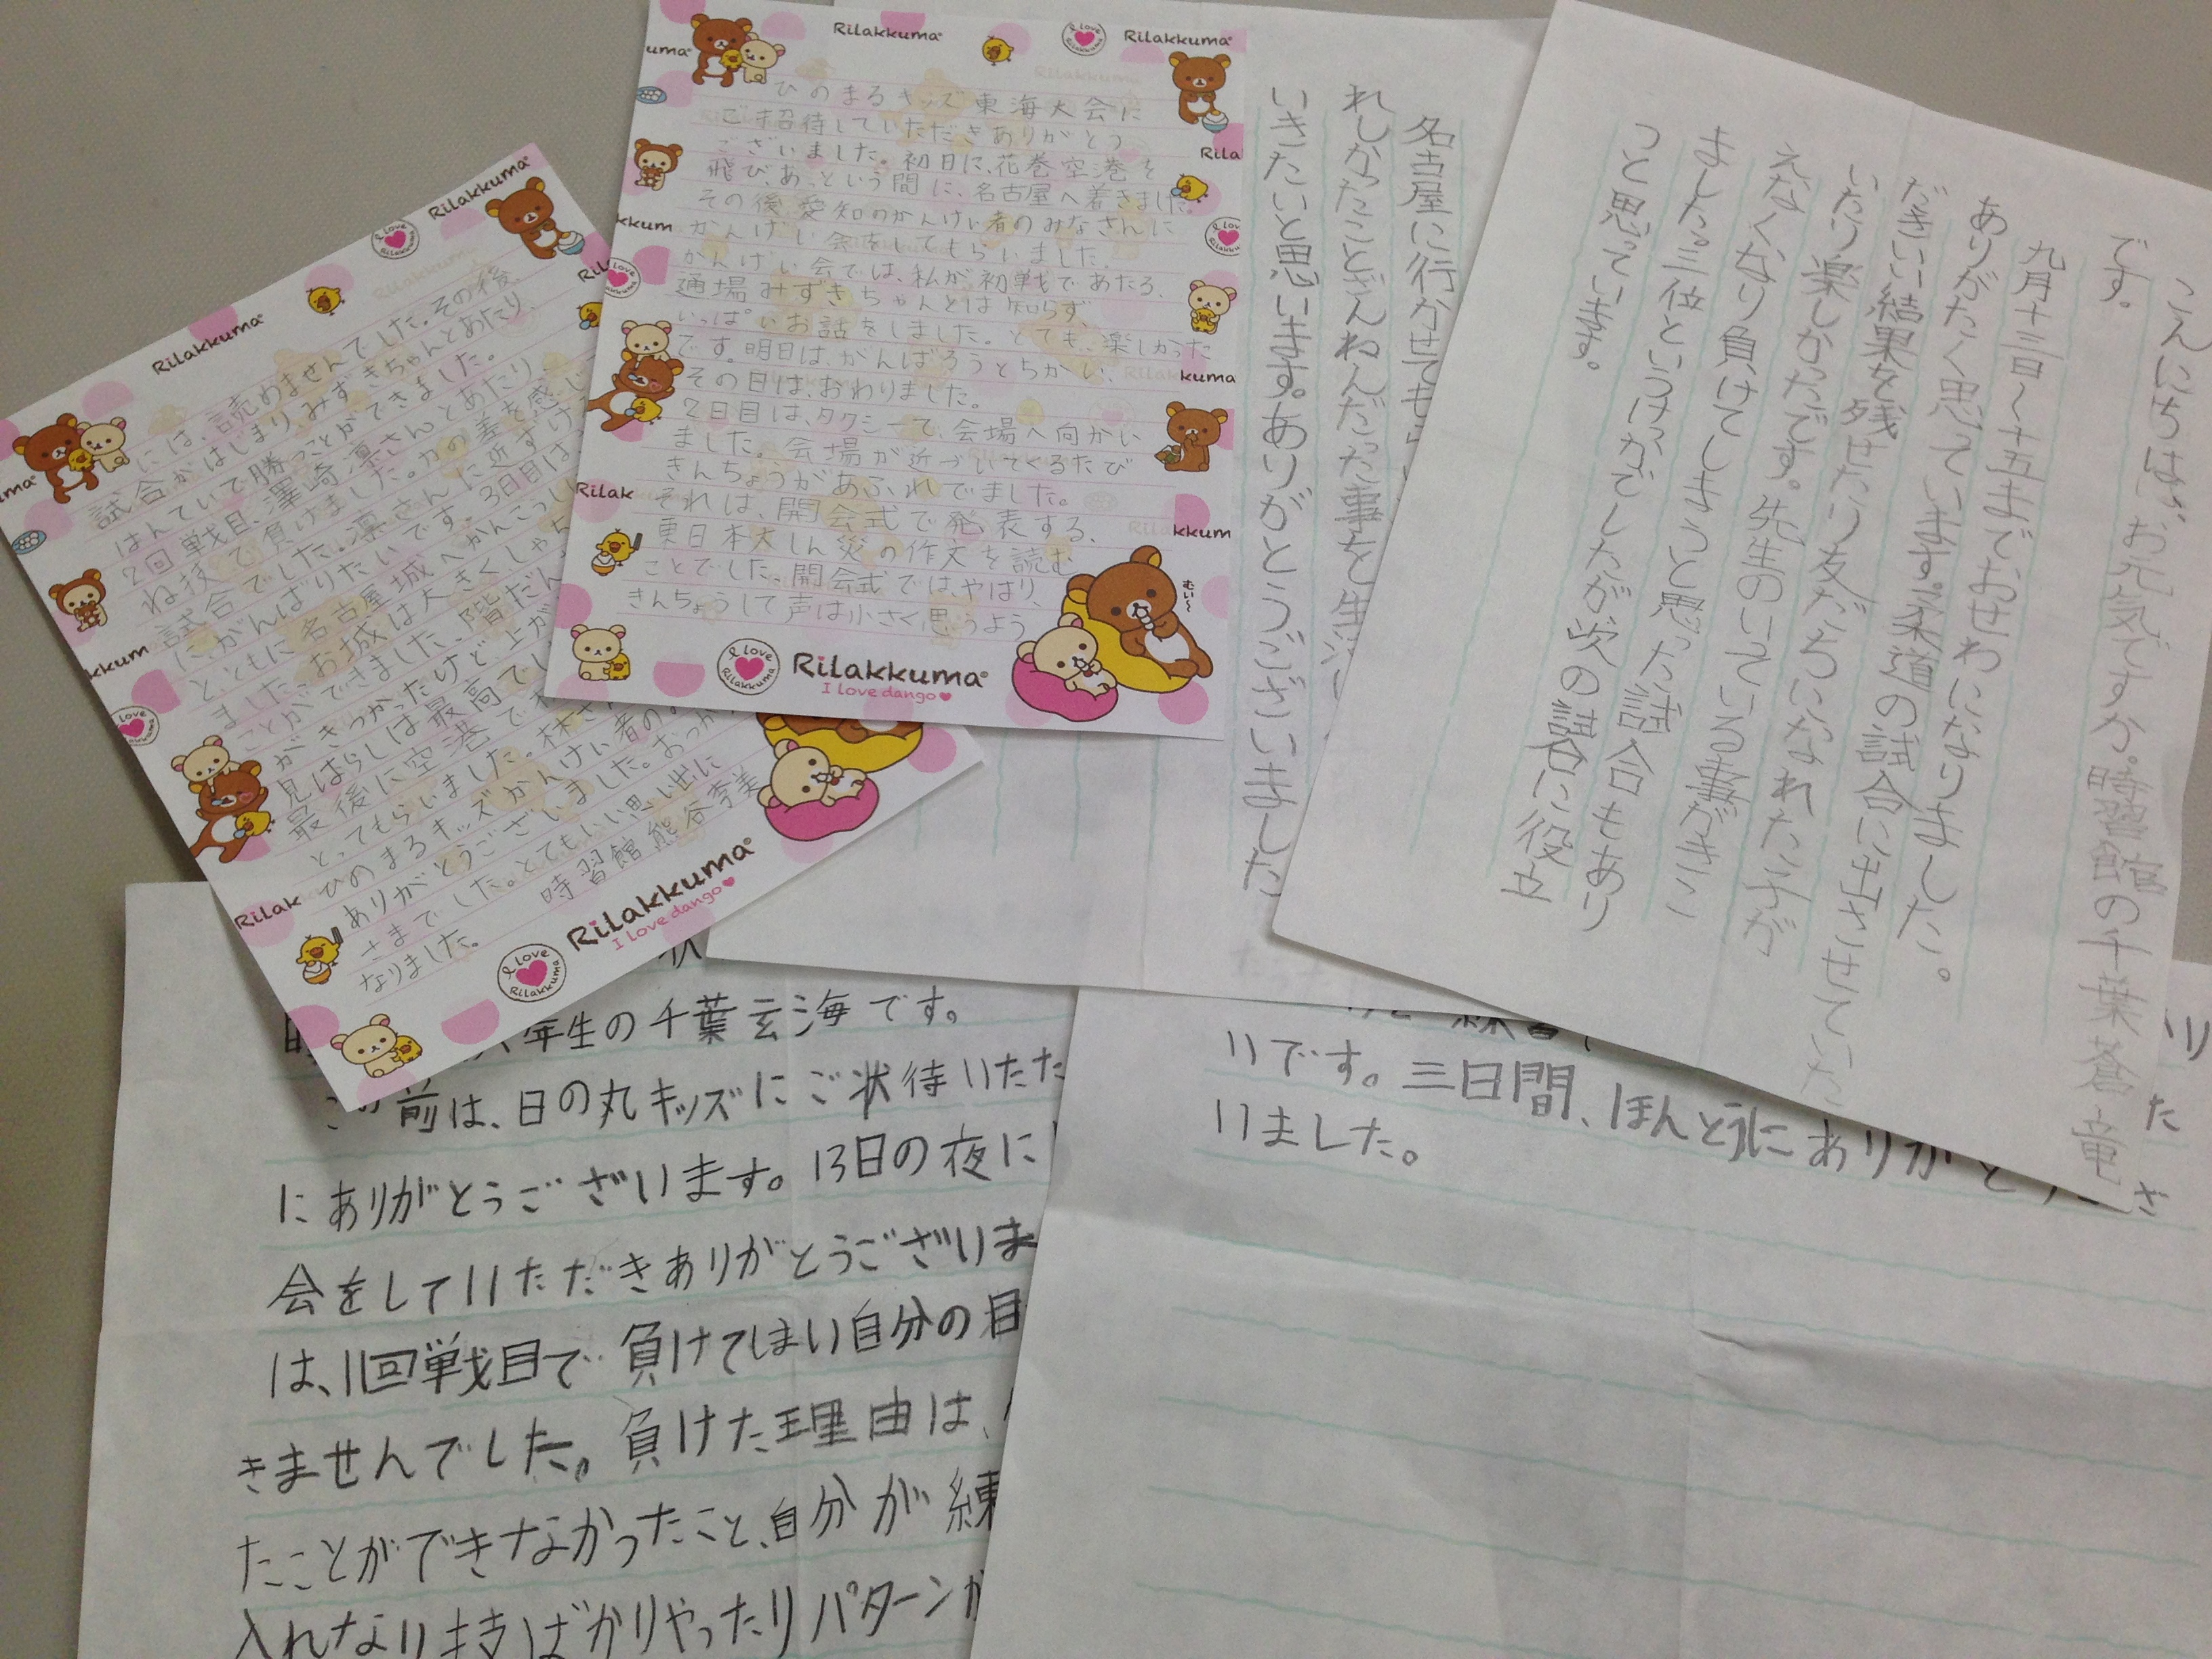 Rilakkuma
Rilakkuma
ひのまるキッズ東海大会に
ご招待していただきありがとう
ございました。初日に、花巻空港を
飛び、あっという間に、名古屋へ着きました。
その後、愛知のかんけい者のみなさんに
かんげい会をしてもらいました。
かんげい会では、私が初戦であたる、
道場みずきちゃんとは知らず、
いっぱいお話をしました。とても、楽しかった
です。明日は、がんばろうとちかい、
その日は、おわりました。
2日目は、タクシーで、会場へ向かい
ました。会場が近づいてくるたび
きんちょうがあふれでました。
それは、開会式で発表する、
東日本大しん災の作文を読む
ことでした。開会式では、やはり、
きんちょうして声は小さく思うよう
むい〜
I love Rilakkuma
Rilakkuma
I love dango
Rilakkuma
Rilakkuma
には、読めませんでした。その後、
試合がはじまり、みずきちゃんとあたり、
はんていで勝つことができました。
2回戦目、澤崎凛さんとあたり、
ね技で負けました。力の差を感じ
試合でした。凛さんに近ずけ
に、がんばりたいです。3日目は
と、ともに名古屋城へかんこうい
ました。お城は大きくしゃち
ことができました。階だん
がきつかったけど上が
見はらしは最高でし
最後に空港で
とってもらいました。林さ
ひのまるキッズかんけい者の
ありがとうございました。おっか
さまでした。とてもいい思い出に
なりました。
時習館 熊谷李美
I love Rilakkuma
Rilakkuma
I love dango
こんにちは。お元気ですか。時習館の千葉蒼竜
です。
九月十三日〜十五までおせわになりました。
ありがたく思っています。柔道の試合に出させていた
だきいい結果を残せたり友だちになれた子が
いたり楽しかったです。先生のいっている事がきこ
えなくなり負けてしまうと思った試合もあり
ました。三位というけっかでしたが次の試合に役立
つと思っています。
名古屋に行かせても
れしかったことざんねんだった事を生
いきたいと思います。ありがとうございました
年生の千葉玄海です。
この前は、日の丸キッズにご状待いたた
にありがとうございます。13日の夜に
会をしていただきありがとうございま
は、1回戦目で負けてしまい自分の目
きませんでした。負けた理由は、
たことができなかったこと、自分が練
入れない技ばかりやったりパターンが
いです。三日間、ほんとうにありがとう
いました。